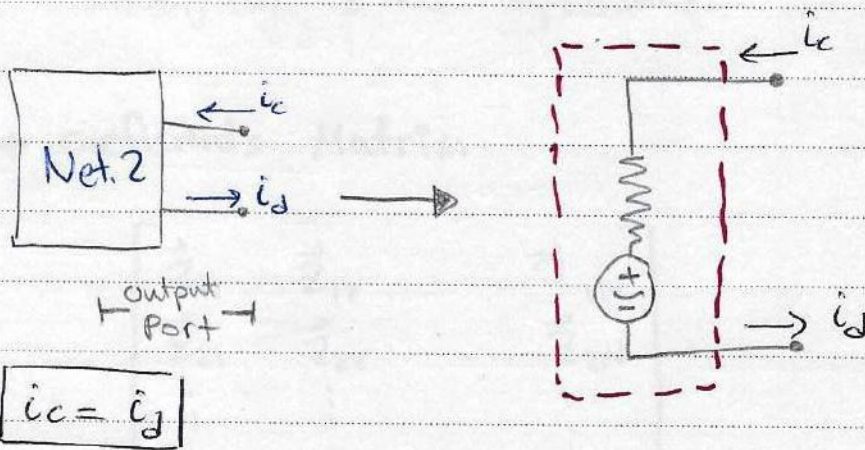 Net. 2
ic
id
output
Port
ic = id
ic
+
-
id